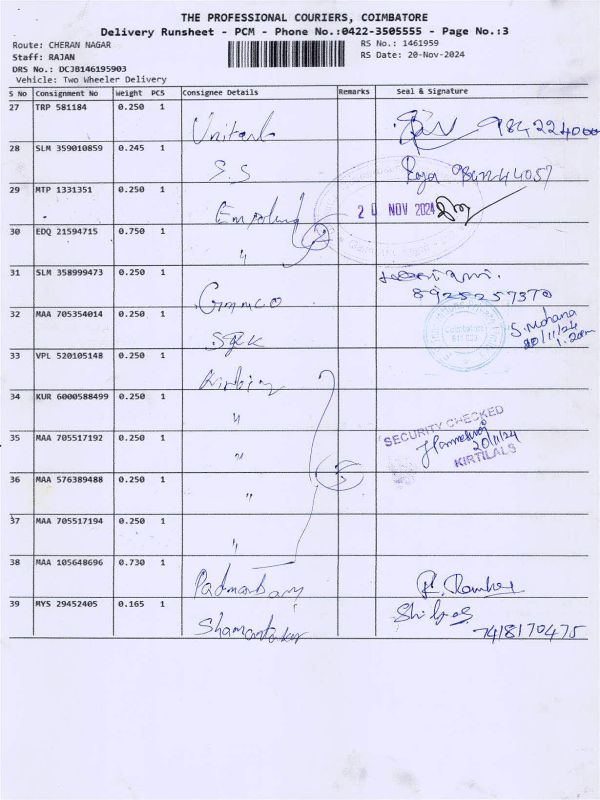 THE PROFESSIONAL COURIERS, COIMBATORE
Delivery Runsheet - PCM - Phone No.:0422-3505555 - Page No.:3
Route: CHERAN NAGAR
RS No.: 1461959
Staff: RAJAN
RS Date: 20-Nov-2024
DRS No.: DCJB146195903
Vehicle: Two Wheeler Delivery
S No Consignment No Weight PCS Consignee Details Remarks Seal & Signature
27 TRP 581184 0.250 1
28 SLM 359010859 0.245 1
S.S Roja
29 MTP 1331351 0.250 1
20 NOV 2024
30 EDQ 21594715 0.750 1
"
31 SLM 358999473 0.250 1
8925257370
32 MAA 705354014 0.250 1
Coimbatore
S. Mohana
20/11/24
33 VPL 520105148 0.250 1
34 KUR 6000588499 0.250 1
"
SECURITY CHECKED
20/11/24
KIRTILALS
35 MAA 705517192 0.250 1
"
36 MAA 576389488 0.250 1
"
37 MAA 705517194 0.250 1
"
38 MAA 105648696 0.730 1
39 MYS 29452405 0.165 1
7418170475